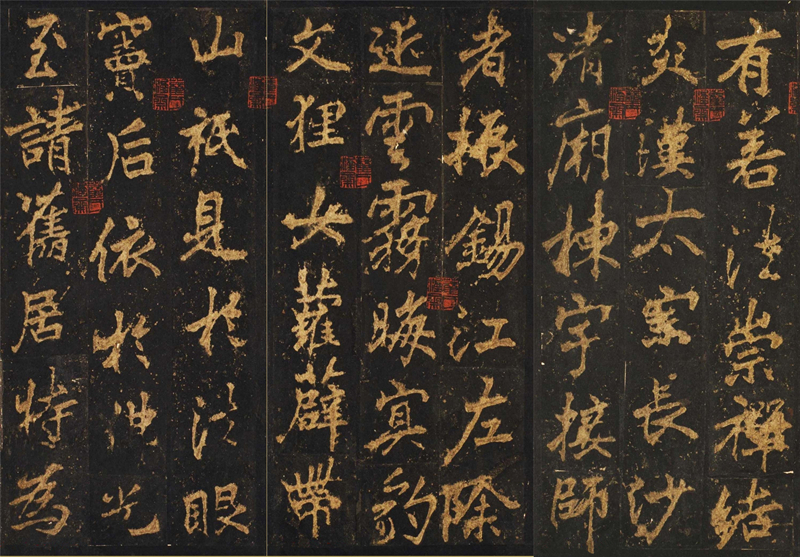 有若法崇禪結
炎漢太宗長沙
清廟棟宇接師
者振錫江左除
迹雲霧晦冥豹
文狸女蘿薜帶
山祇見於法眼
竇后依於佛光
至請舊居特為